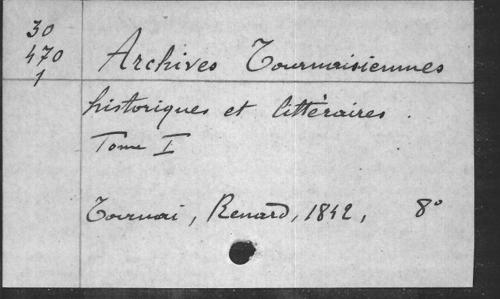 30
470
1
Archives Tournaisiennes
historiques et littéraires.
Tome I
Tournai, Renard, 1842, 8°